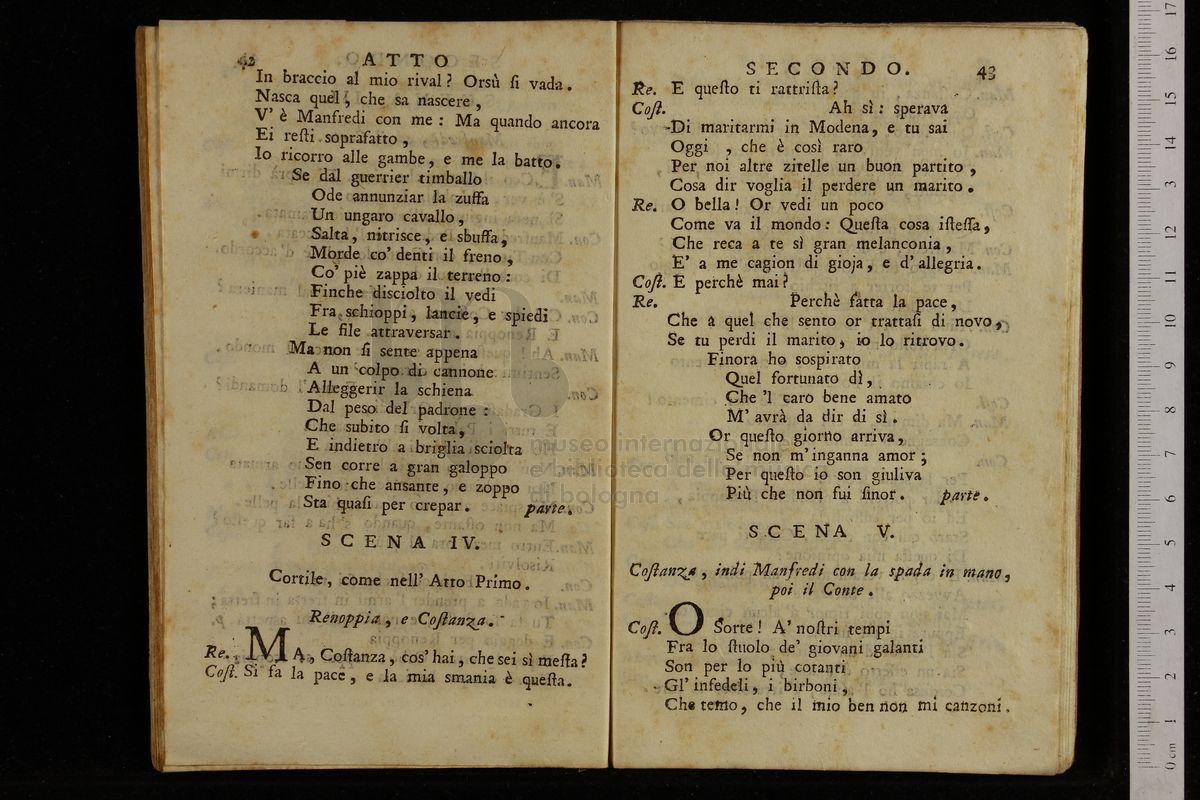 42 ATTO
In braccio al mio rival? Orsù ſi vada.
Nasca quel, che sa nascere,
V' è Manfredi con me: Ma quando ancora
Ei reſti soprafatto,
Io ricorro alle gambe, e me la batto.
Se dal guerrier timballo
Ode annunziar la zuffa
Un ungaro cavallo,
Salta, nitrisce, e sbuffa,
Morde co' denti il freno,
Co' piè zappa il terreno:
Finche disciolto il vedi
Fra schioppi, lancie, e spiedi
Le file attraversar.
Ma non ſi sente appena
A un colpo di cannone
Alleggerir la schiena
Dal peso del padrone:
Che subito ſi volta,
E indietro a briglia sciolta
Sen corre a gran galoppo
Fino che ansante, e zoppo
Sta quaſi per crepar. parte.
SCENA IV.
Cortile, come nell' Atto Primo.
Renoppia, e Coſtanza.
Re. MA, Coſtanza, cos' hai, che sei sì meſta?
Coſt. Si fa la pace, e la mia smania è queſta.
SECONDO. 43
Re. E queſto ti rattriſta?
Coſt. Ah sì: sperava
Di maritarmi in Modena, e tu sai
Oggi, che è così raro
Per noi altre zitelle un buon partito,
Cosa dir voglia il perdere un marito.
Re. O bella! Or vedi un poco
Come va il mondo: Queſta cosa iſteſſa,
Che reca a te sì gran melanconia,
E' a me cagion di gioja, e d'allegria.
Coſt. E perchè mai?
Re. Perchè fatta la pace,
Che a quel che sento or trattaſi di novo,
Se tu perdi il marito, io lo ritrovo.
Finora ho sospirato
Quel fortunato dì,
Che 'l caro bene amato
M' avrà da dir di sì.
Or queſto giorno arriva,
Se non m'inganna amor;
Per queſto io son giuliva
Più che non fui ſinor. parte.
SCENA V.
Coſtanza, indi Manfredi con la spada in mano,
poi il Conte.
Coſt. O Sorte! A' noſtri tempi
Fra lo ſtuolo de' giovani galanti
Son per lo più cotanti
Gl' infedeli, i birboni,
Che temo, che il mio ben non mi canzoni.
museo internazionale
e biblioteca della musica
di bologna
0 cm 1 2 3 4 5 6 7 8 9 10 11 12 13 14 15 16 17